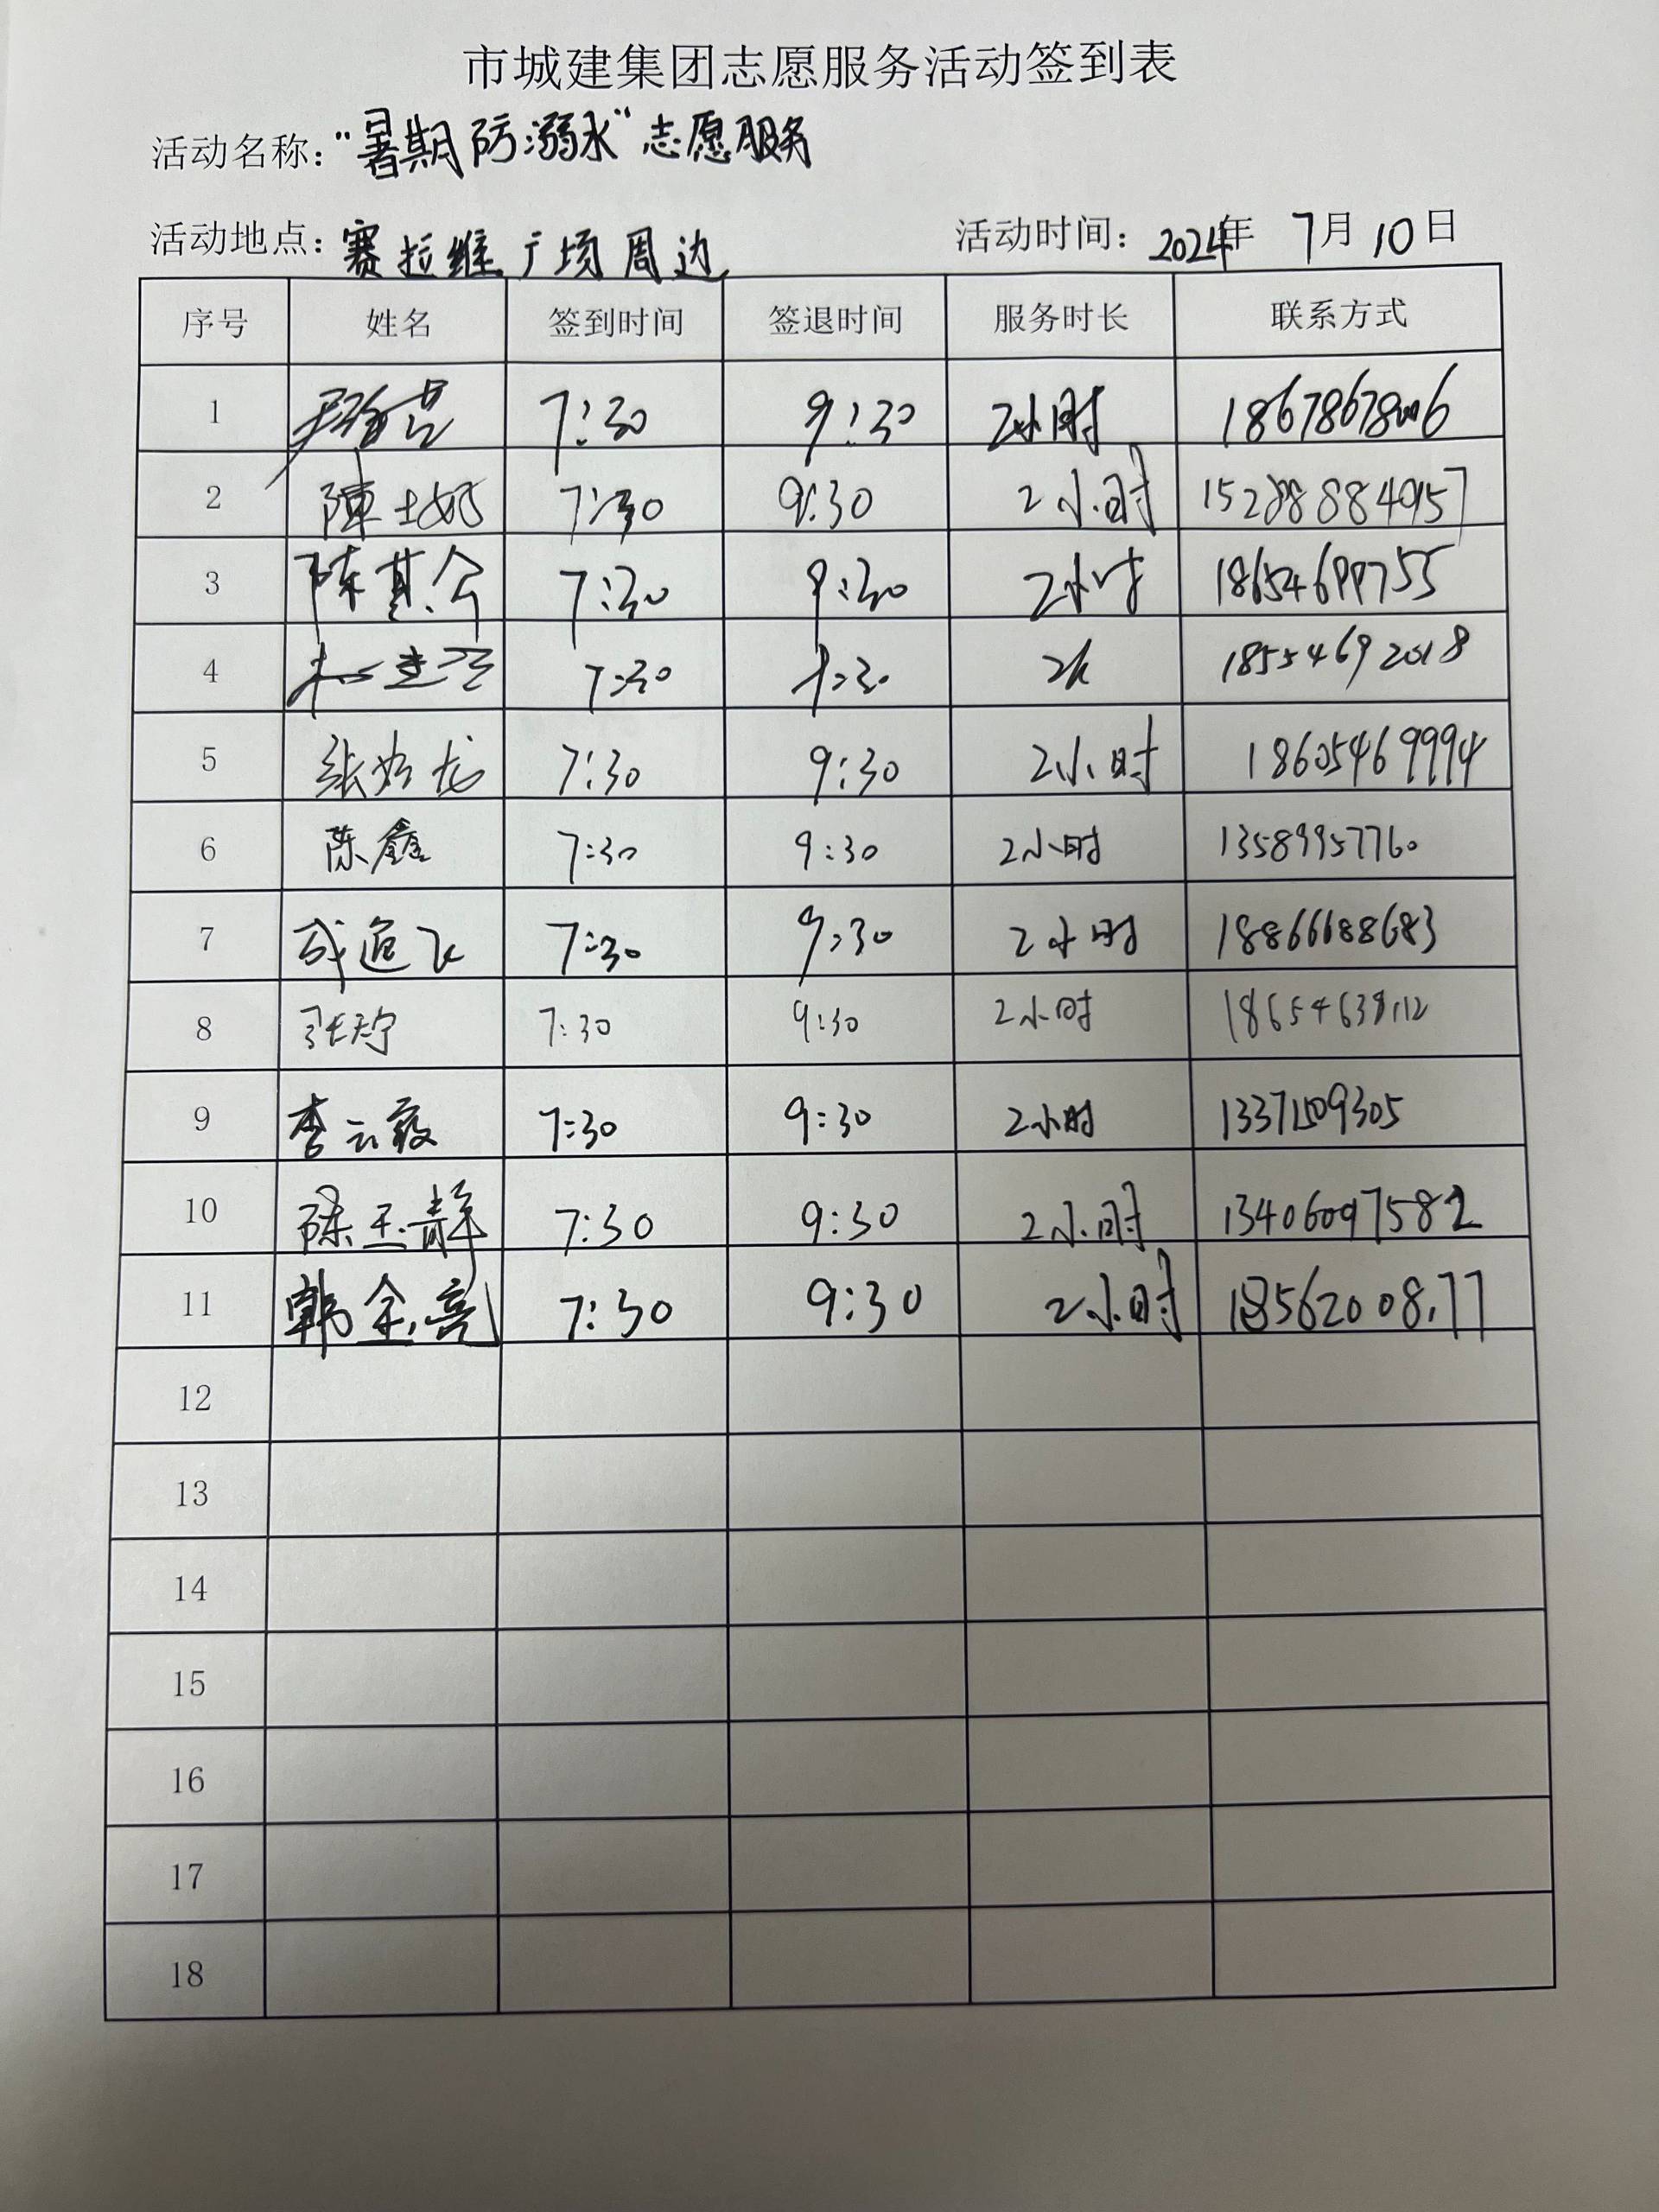 市城建集团志愿服务活动签到表
活动名称："暑期防溺水"志愿服务
活动地点：赛拉维广场周边 活动时间：2024年 7月10日
序号 姓名 签到时间 签退时间 服务时长 联系方式
1 7:30 9:30 2小时
2 7:30 9:30 2小时 15288884957
3 陈其令 7:30 9:30 2小时 18654699755
4 7:30 9:30 2h 18554692018
5 7:30 9:30 2小时 18605469994
6 陈鑫 7:30 9:30 2小时 13589957760
7 成追飞 7:30 9:30 2小时 18866688683
8 7:30 9:30 2小时
9 李云霞 7:30 9:30 2小时 13371509305
10 陈玉静 7:30 9:30 2小时 13406097582
11 韩金亮 7:30 9:30 2小时 18562008177
12
13
14
15
16
17
18